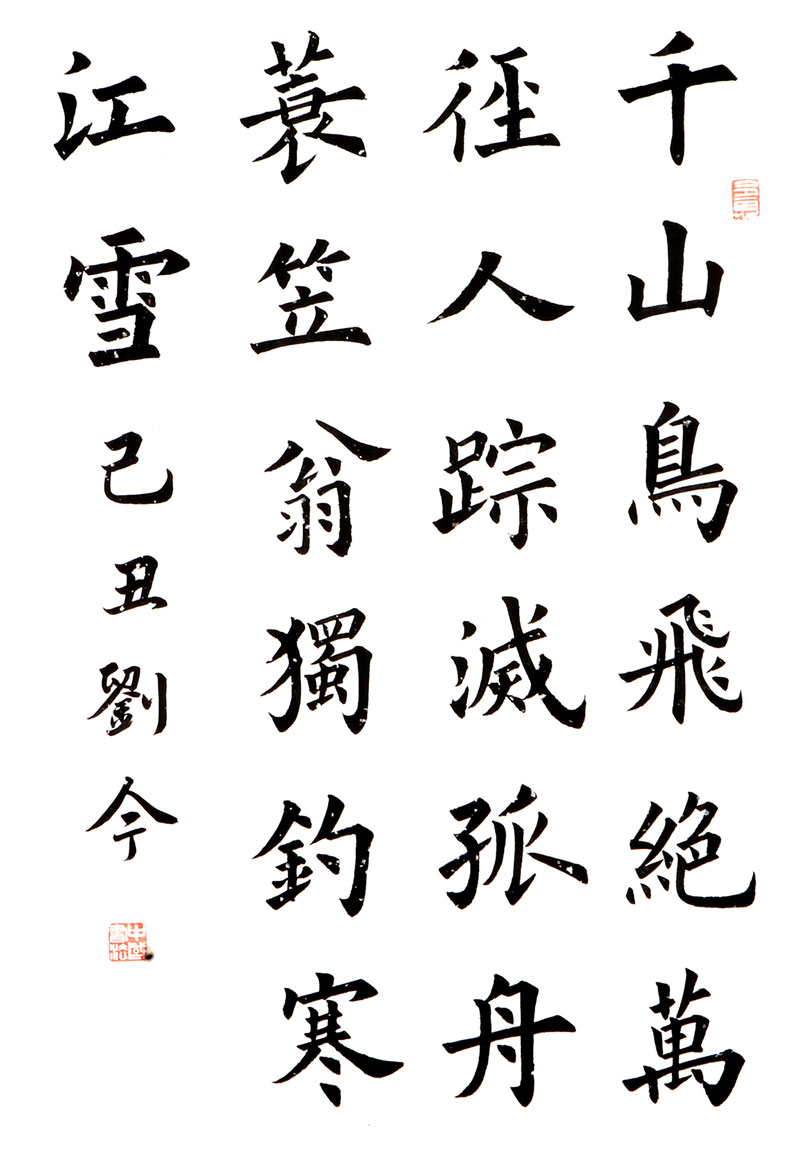 千山鳥飛絶萬
徑人踪滅孤舟
蓑笠翁獨釣寒
江雪己丑劉今